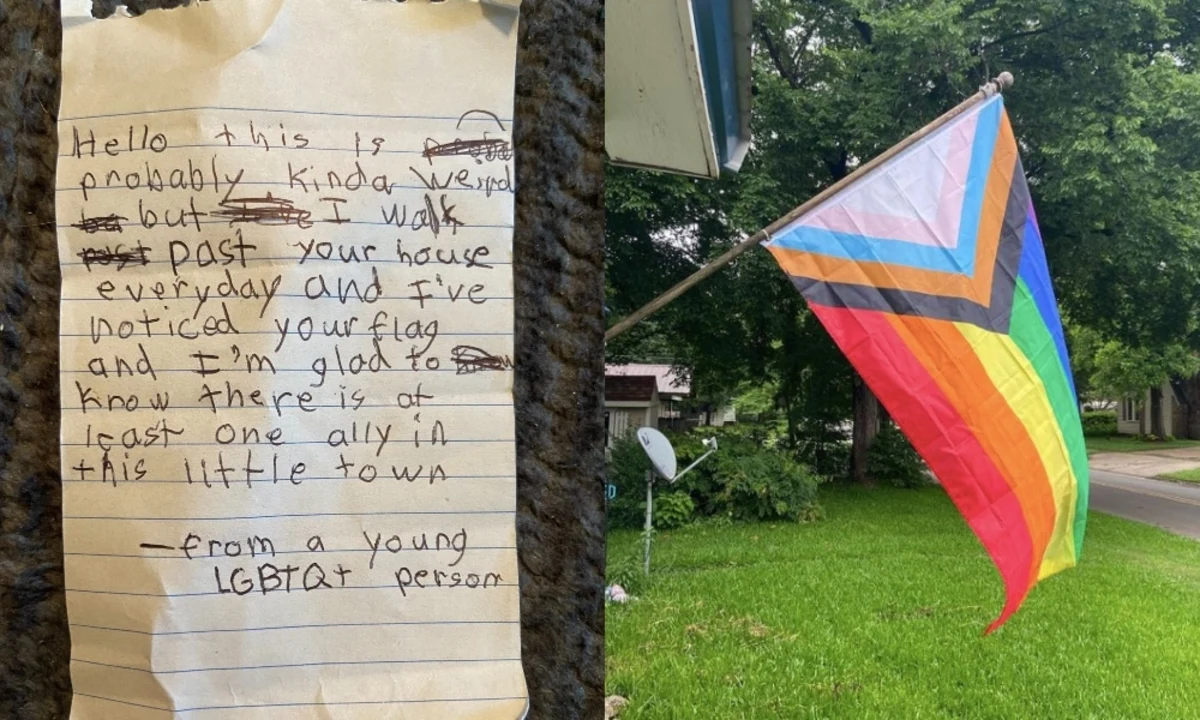 Hello this is
probably kinda weird
but I walk
past your house
everyday and I've
noticed your flag
and I'm glad to
know there is at
least one ally in
this little town
—from a young
LGBTQ+ person